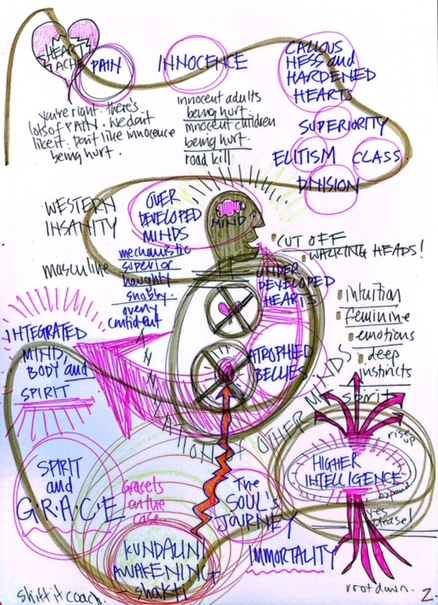 HEART
ACHE
PAIN
INNOCENCE
CALLOUS
NESS and
HARDENED
HEARTS
you're right. there's
lots of PAIN. we don't
like it. don't like innocence
being hurt.
innocent adults
being hurt
innocent children
being hurt.
road kill
SUPERIORITY
ELITISM
CLASS
DIVISION
WESTERN
INSANITY
OVER
DEVELOPED
MINDS
MIND
masculine
mechanistic
superior
haughty
snobby.
overly
confident
CUT OFF
WALKING HEADS!
UNDER
DEVELOPED
HEARTS
ATROPHIED
BELLIES
intuition
feminine
emotions
deep
instincts
spirit
INTEGRATED
MIND,
BODY and
SPIRIT
OTHER MINDS
rise up
HIGHER
INTELLIGENCE
expand
yes
please!
SPIRIT
and
G.R.A.C.E
Grace's
on the
case
The
SOUL'S
JOURNEY
KUNDALINI
AWAKENING
shakti
IMMORTALITY
shift it coach.
root down.
2.